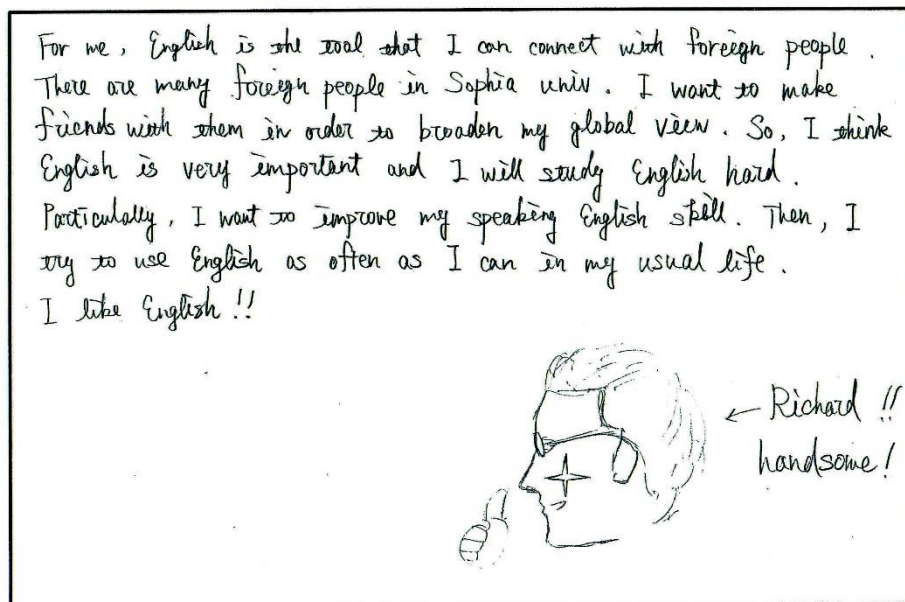 For me, English is the tool that I can connect with foreign people.
There are many foreign people in Sophia univ. I want to make
friends with them in order to broaden my global view. So, I think
English is very important and I will study English hard.
Particulally, I want to improve my speaking English skill. Then, I
try to use English as often as I can in my usual life.
I like English!!
← Richard!!
handsome!